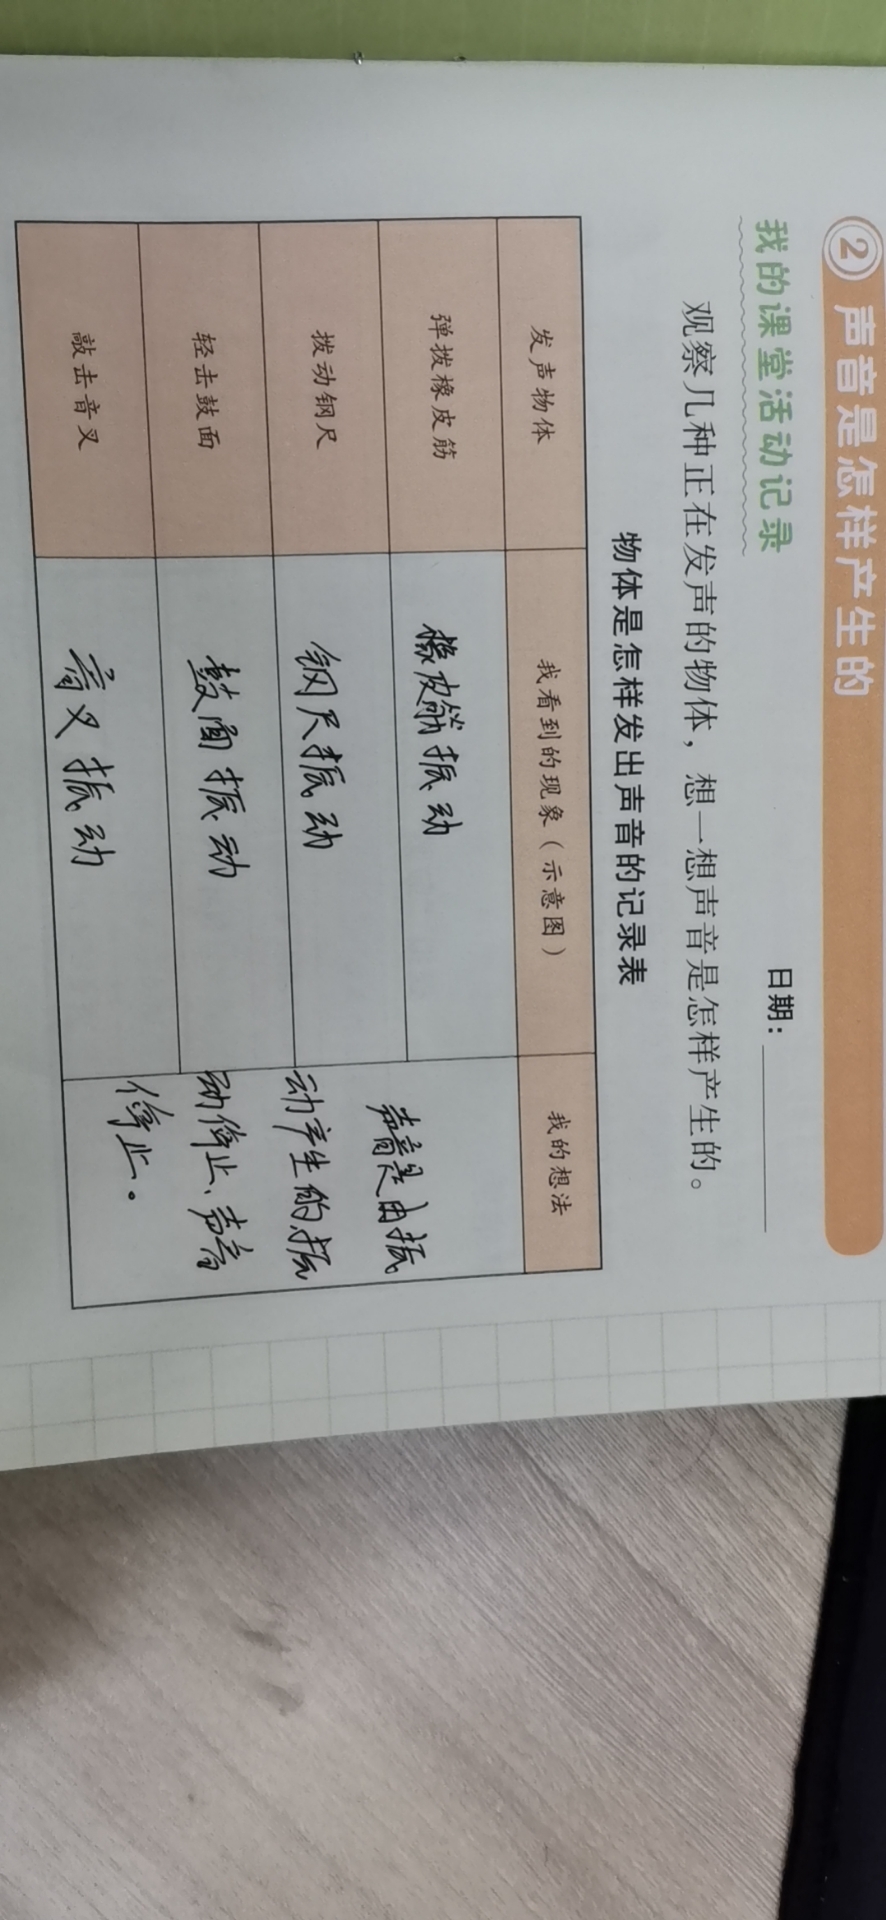 ② 声音是怎样产生的
我的课堂活动记录
日期：
观察几种正在发声的物体，想一想声音是怎样产生的。
物体是怎样发出声音的记录表
发声物体 我看到的现象（示意图） 我的想法
弹拨橡皮筋 橡皮筋振动
拨动钢尺 钢尺振动
轻击鼓面 鼓面振动
敲击音叉 音叉振动
声音是由振
动产生的,振
动停止、声音
停止。